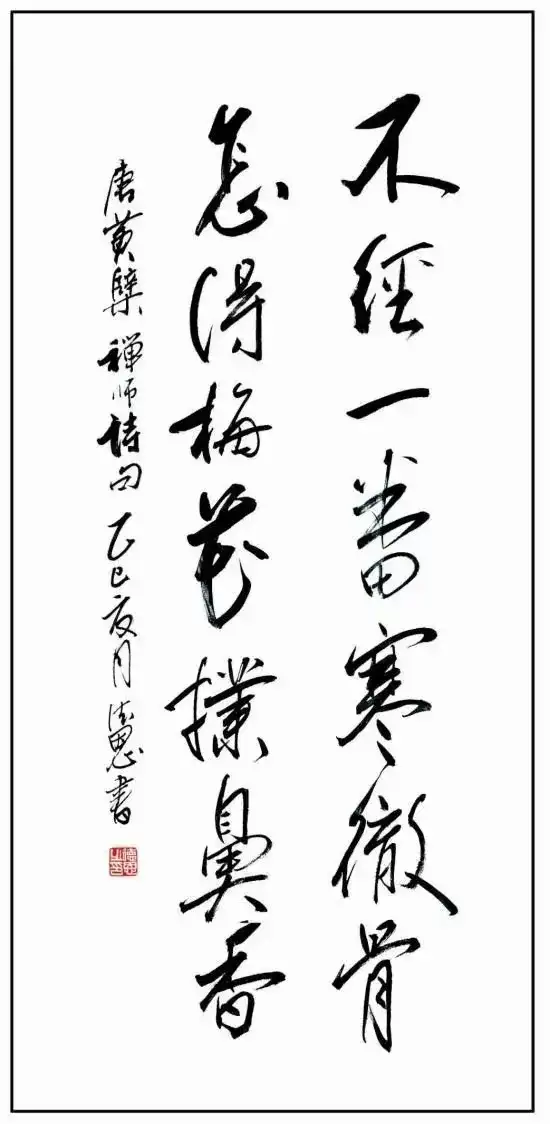 不經一番寒徹骨
怎得梅花撲鼻香
唐黃檗禪師詩句 乙巳 月 書